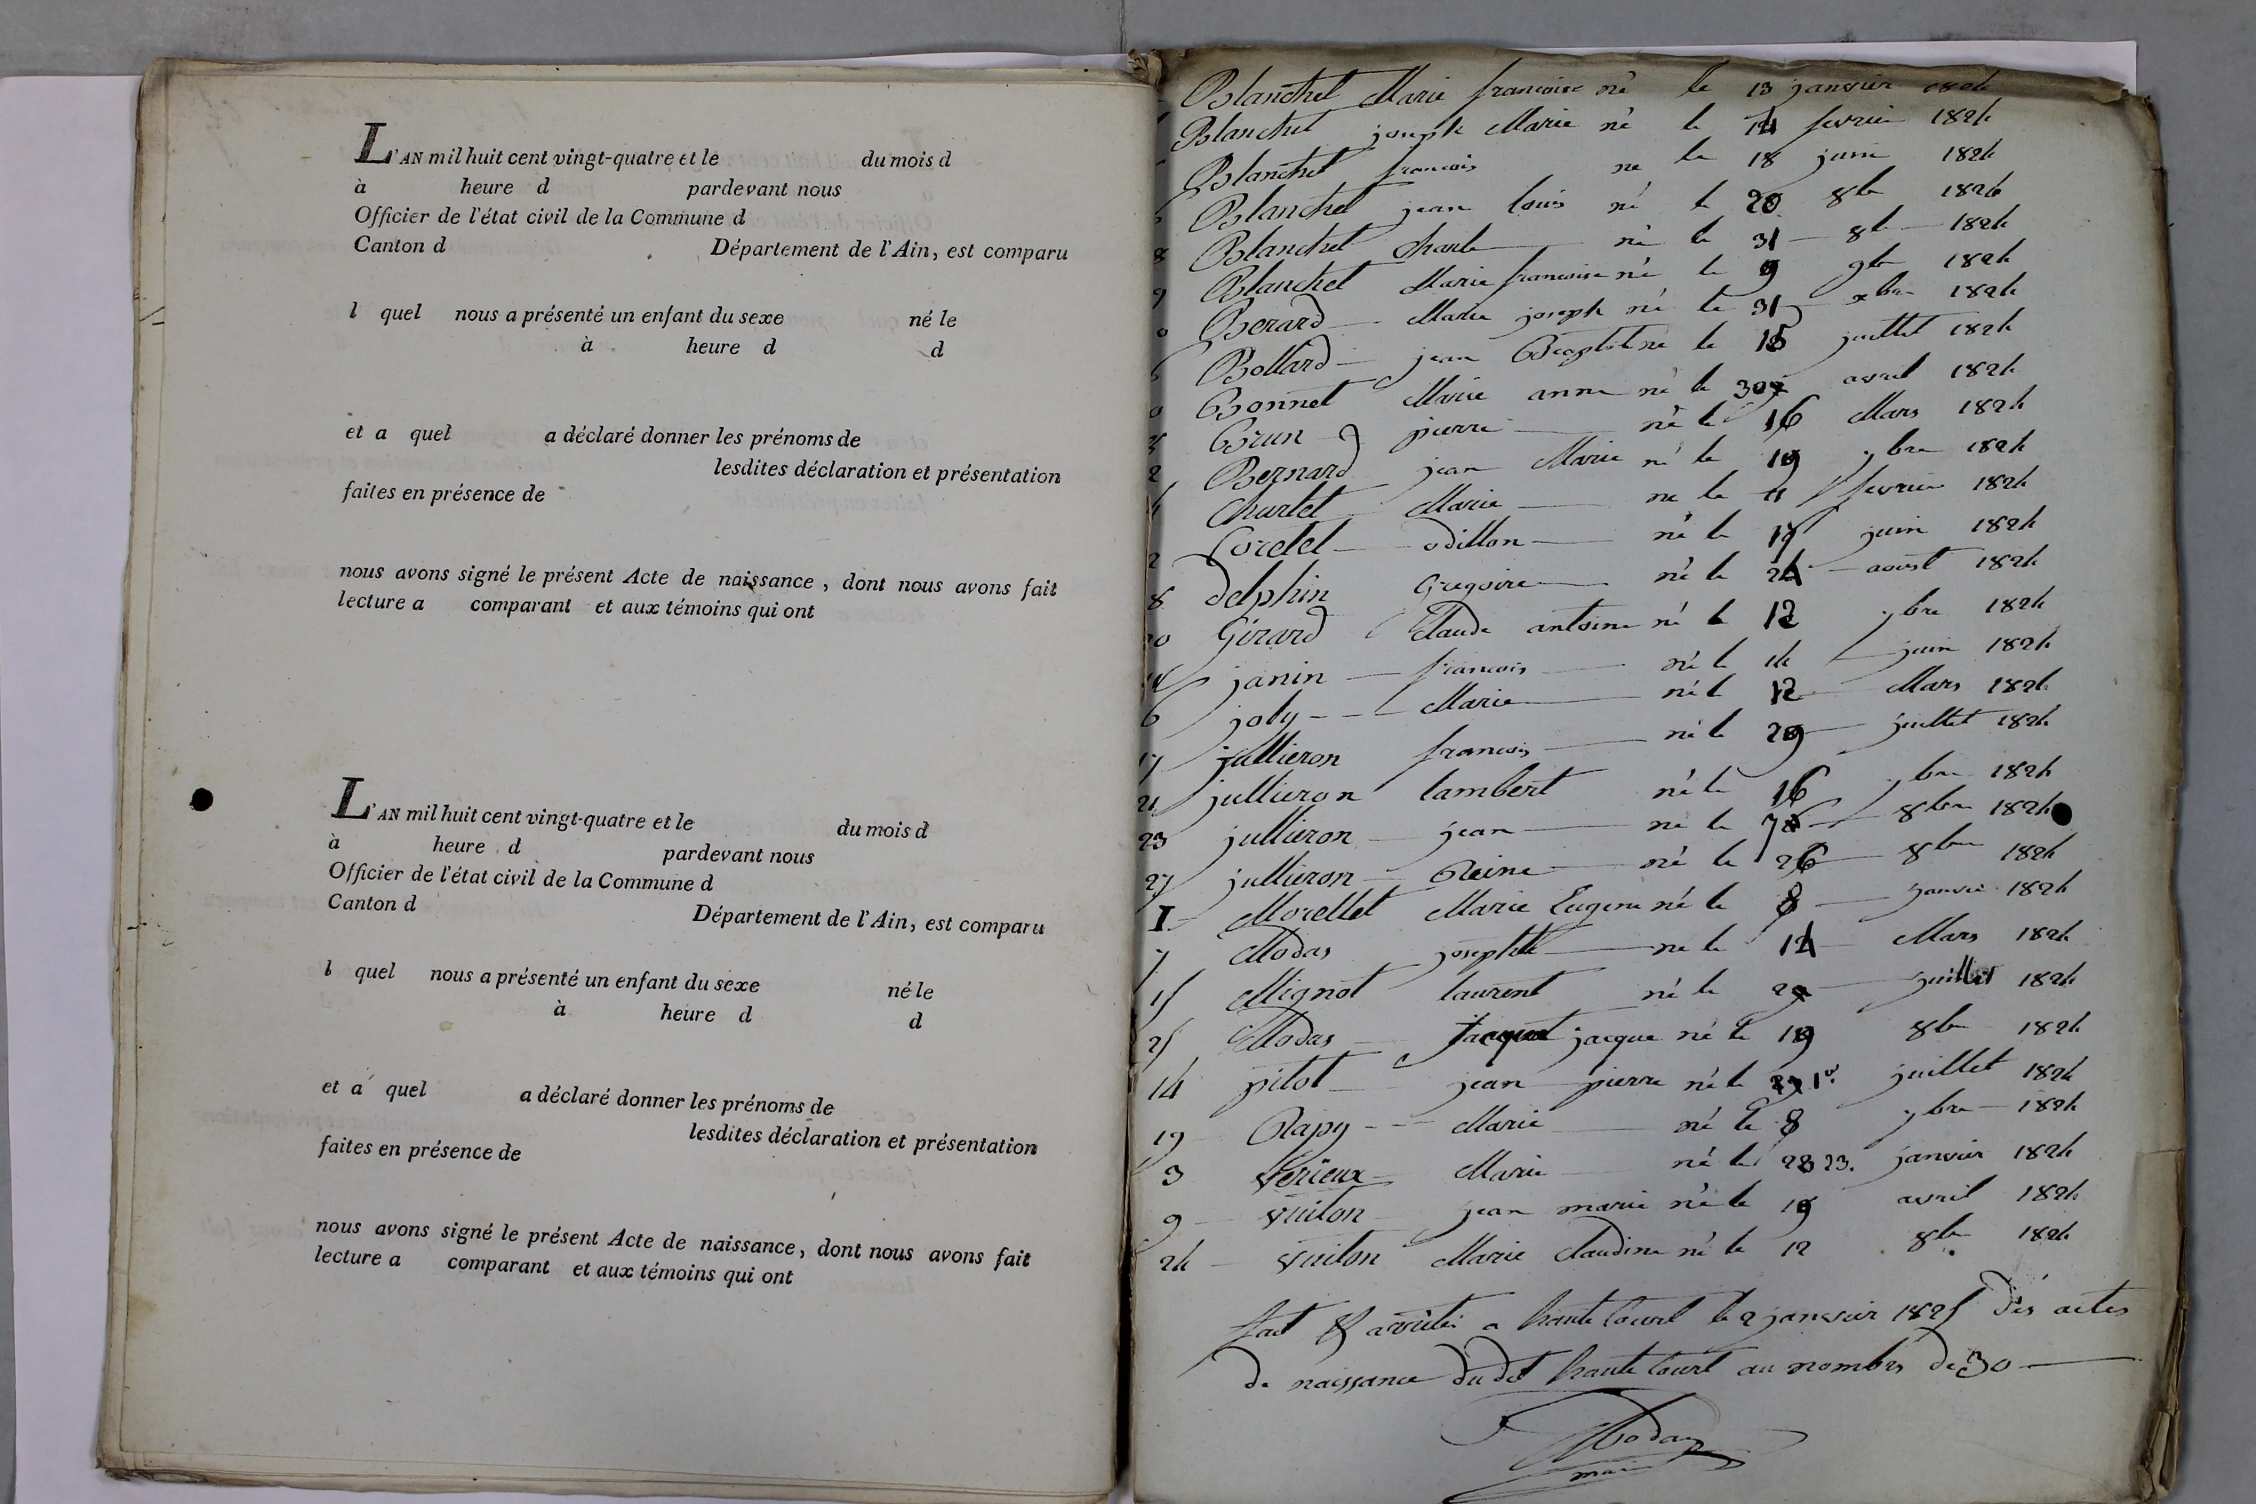 L'AN mil huit cent vingt-quatre et le du mois d
à heure d pardevant nous
Officier de l'état civil de la Commune d
Canton d Département de l'Ain, est comparu
l quel nous a présenté un enfant du sexe né le
à heure d d
et a quel a déclaré donner les prénoms de
lesdites déclaration et présentation
faites en présence de
nous avons signé le présent Acte de naissance, dont nous avons fait
lecture a comparant et aux témoins qui ont
L'AN mil huit cent vingt-quatre et le du mois d
à heure d pardevant nous
Officier de l'état civil de la Commune d
Canton d Département de l'Ain, est comparu
l quel nous a présenté un enfant du sexe né le
à heure d d
et a quel a déclaré donner les prénoms de
lesdites déclaration et présentation
faites en présence de
nous avons signé le présent Acte de naissance, dont nous avons fait
lecture a comparant et aux témoins qui ont
Blanchet Marie francoise né le 13 janvier 1824
Blanchet joseph Marie né le 14 fevrier 1824
Blanchet francois né le 18 juin 1824
Blanchet jean louis né le 20 8bre 1824
8 Blanchet Charle né le 31 8bre 1824
9 Blanchet Marie francoise né le 9 9bre 1824
0 Berard Marie joseph né le 31 xbre 1824
6 Bollard jean Baptiste né le 15 juillet 1824
0 Bonnet Marie anne né le 30 avril 1824
Brun pierre né le 16 Mars 1824
2 Bernard jean Marie né le 19 7bre 1824
4 Churlet Marie né le 11 fevrier 1824
2 Coretet odillon né le juin 1824
8 Delphin Gregoire né le 24 aoust 1824
20 Girard Claude antoine né le 12 7bre 1824
janin francois né le 14 juin 1824
6 joly Marie né le 12 Mars 1824
17 jullieron francois né le 29 juillet 1824
21 jullieron lambert né le 16 7bre 1824
23 jullieron jean né le 8bre 1824
27 jullieron Reine né le 26 8bre 1824
I Morellet Marie Eugene né le 8 janvier 1824
7 Modas josephte né le 14 Mars 1824
15 Mignot laurent né le 29 juillet 1824
25 Modas jacque né le 19 8bre 1824
14 pitot jean pierre né le 1er juillet 1824
19 Rapy Marie né le 8 7bre 1824
3 Verieux Marie né le 23. janvier 1824
9 Vuiton jean marie né le 19 avril 1824
24 Vuiton Marie Claudine né le 12 8bre 1824
fait & arrêté a hautecourt le 2 janvier 1825 Dés actes
de naissance dudit hautecourt au nombre de 30
Modas
maire